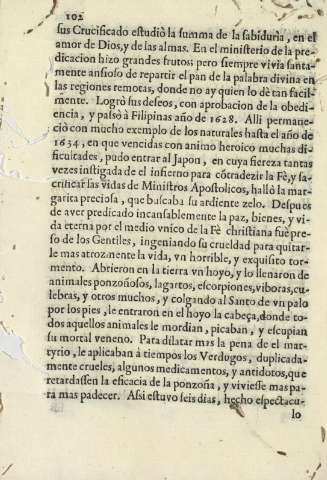 102
sus Crucificado estudiò la summa de la sabiduria, en el
amor de Dios, y de las almas. En el ministerio de la pre-
dicacion hizo grandes frutos; pero siempre vivia santa-
mente ansioso de repartir el pan de la palabra divina en
las regiones remotas, donde no ay quien lo dè tan facil-
mente. Logrò sus deseos, con aprobacion de la obedi-
encia, y passò a Filipinas año de 1628. Alli permane-
ciò con mucho exemplo de los naturales hasta el año de
1634, en que vencidas con animo heroico muchas di-
ficultades, pudo entrar al Japon, en cuya fiereza tantas
vezes instigada de el infierno para cõtradezir la Fè, y sa-
crificar las vidas de Ministros Apostolicos, hallò la mar-
garita preciosa, que buscaba su ardiente zelo. Despues
de aver predicado incansablemente la paz, bienes, y vi-
da eterna por el medio vnico de la Fè christiana fuè pre-
so de los Gentiles, ingeniando su crueldad para quitar-
le mas atrozmente la vida, vn horrible, y exquisito tor-
mento. Abrieron en la tierra vn hoyo, y lo llenaron de
animales ponzoñosos, lagartos, escorpiones, viboras, cu-
lebras, y otros muchos, y colgando al Santo de vn palo
por los pies, le entraron en el hoyo la cabeça, donde to-
dos aquellos animales le mordian, picaban, y escupian
su mortal veneno. Para dilatar mas la pena de el mar-
tyrio, le aplicaban à tiempos los Verdugos, duplicada-
mente crueles, algunos medicamentos, y antidotos, que
retardassen la eficacia de la ponzoña, y viviesse mas pa-
ra mas padecer. Assi estuvo seis dias, hecho espectacu-
lo